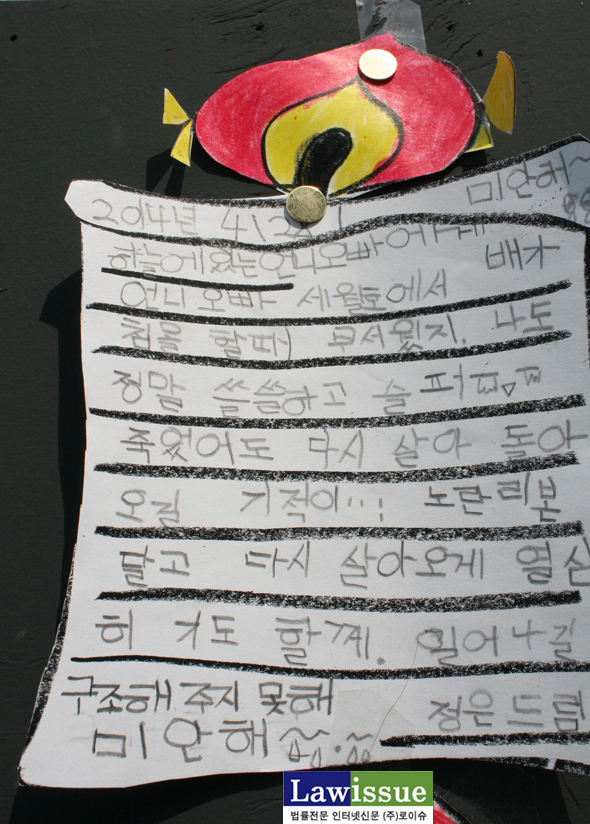 미안해~
2014년 4\2
하늘에있는언니오빠에게 배가
언니 오빠 세월호에서
침몰 할때 무서웠지. 나도
정말 쓸쓸하고 슬퍼ㅠㅠ
죽었어도 다시 살아 돌아
오길 기적이...! 노란리본
달고 다시 살아오게 열심
히 기도 할께. 일어나길
구조해 주지 못해 정은드림
미안해
Lawissue
법률전문 인터넷신문 (주)로이슈